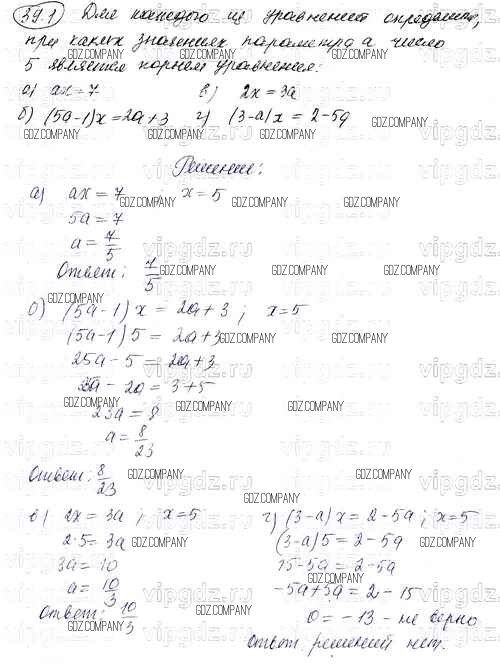 39.1 Для каждого из уравнений определите,
при каких значениях параметра а число
5 является корнем уравнения:
а) ax = 7   в) 2x = 3a
б) (5a-1)x = 2a+3   г) (3-a)x = 2-5a
Решение:
а) ax = 7 ; x = 5
5a = 7
a = 7/5
Ответ: 7/5
б) (5a-1)x = 2a+3 ; x=5
(5a-1)5 = 2a+3
25a - 5 = 2a+3
25a - 2a = 3+5
23a = 8
a = 8/23
Ответ: 8/23
в) 2x = 3a ; x=5
2·5 = 3a
3a = 10
a = 10/3
Ответ: 10/3
г) (3-a)x = 2-5a ; x=5
(3-a)5 = 2-5a
15-5a = 2-5a
-5a+5a = 2-15
0 = -13 - не верно
Ответ: решений нет.
GDZ.COMPANY
vipgdz.ru